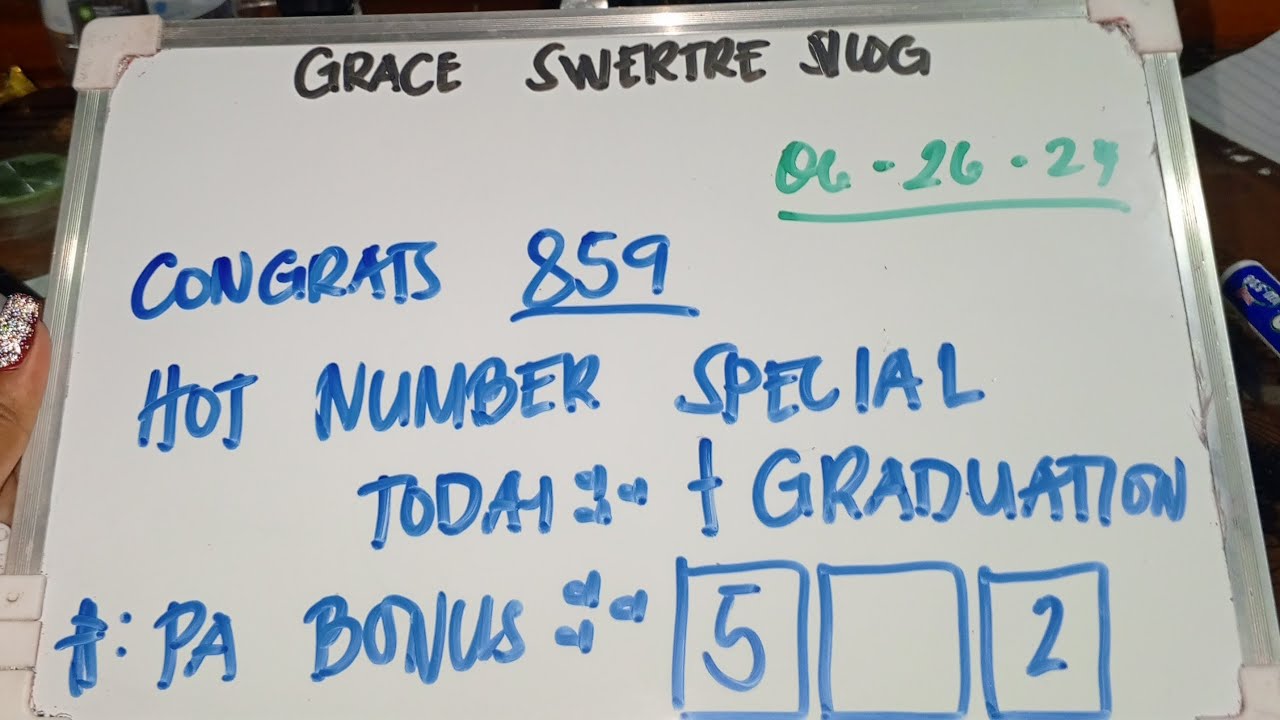 GRACE SWERTRE VLOG
06 - 26 - 24
CONGRATS 859
HOT NUMBER SPECIAL
TODAY + GRADUATION
#: PA BONUS 5 2